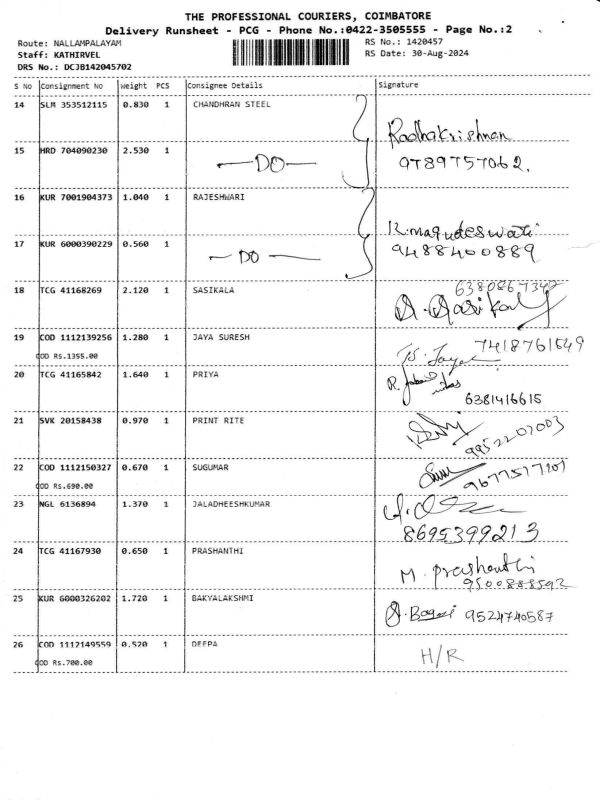 THE PROFESSIONAL COURIERS, COIMBATORE
Delivery Runsheet - PCG - Phone No.:0422-3505555 - Page No.:2
Route: NALLAMPALAYAM
RS No.: 1420457
Staff: KATHIRVEL
RS Date: 30-Aug-2024
DRS No.: DCJB142045702
S No Consignment No Weight PCS Consignee Details Signature
14 SLM 353512115 0.830 1 CHANDHRAN STEEL
Radhakrishnan
15 HRD 704090230 2.530 1 —DO— 9789757062.
16 KUR 7001904373 1.040 1 RAJESHWARI
R.magudeswati
17 KUR 6000390229 0.560 1 —DO— 9488400889
18 TCG 41168269 2.120 1 SASIKALA 6380867342
19 COD 1112139256 1.280 1 JAYA SURESH 7418761649
COD Rs.1355.00
20 TCG 41165842 1.640 1 PRIYA
6381416615
21 SVK 20158438 0.970 1 PRINT RITE
9952207003
22 COD 1112150327 0.670 1 SUGUMAR
COD Rs.690.00
23 NGL 6136894 1.370 1 JALADHEESHKUMAR
8695399213
24 TCG 41167930 0.650 1 PRASHANTHI
M. prashanthi
9500888592
25 KUR 6000326202 1.720 1 BAKYALAKSHMI
9524740587
26 COD 1112149559 0.520 1 DEEPA H/R
COD Rs.700.00